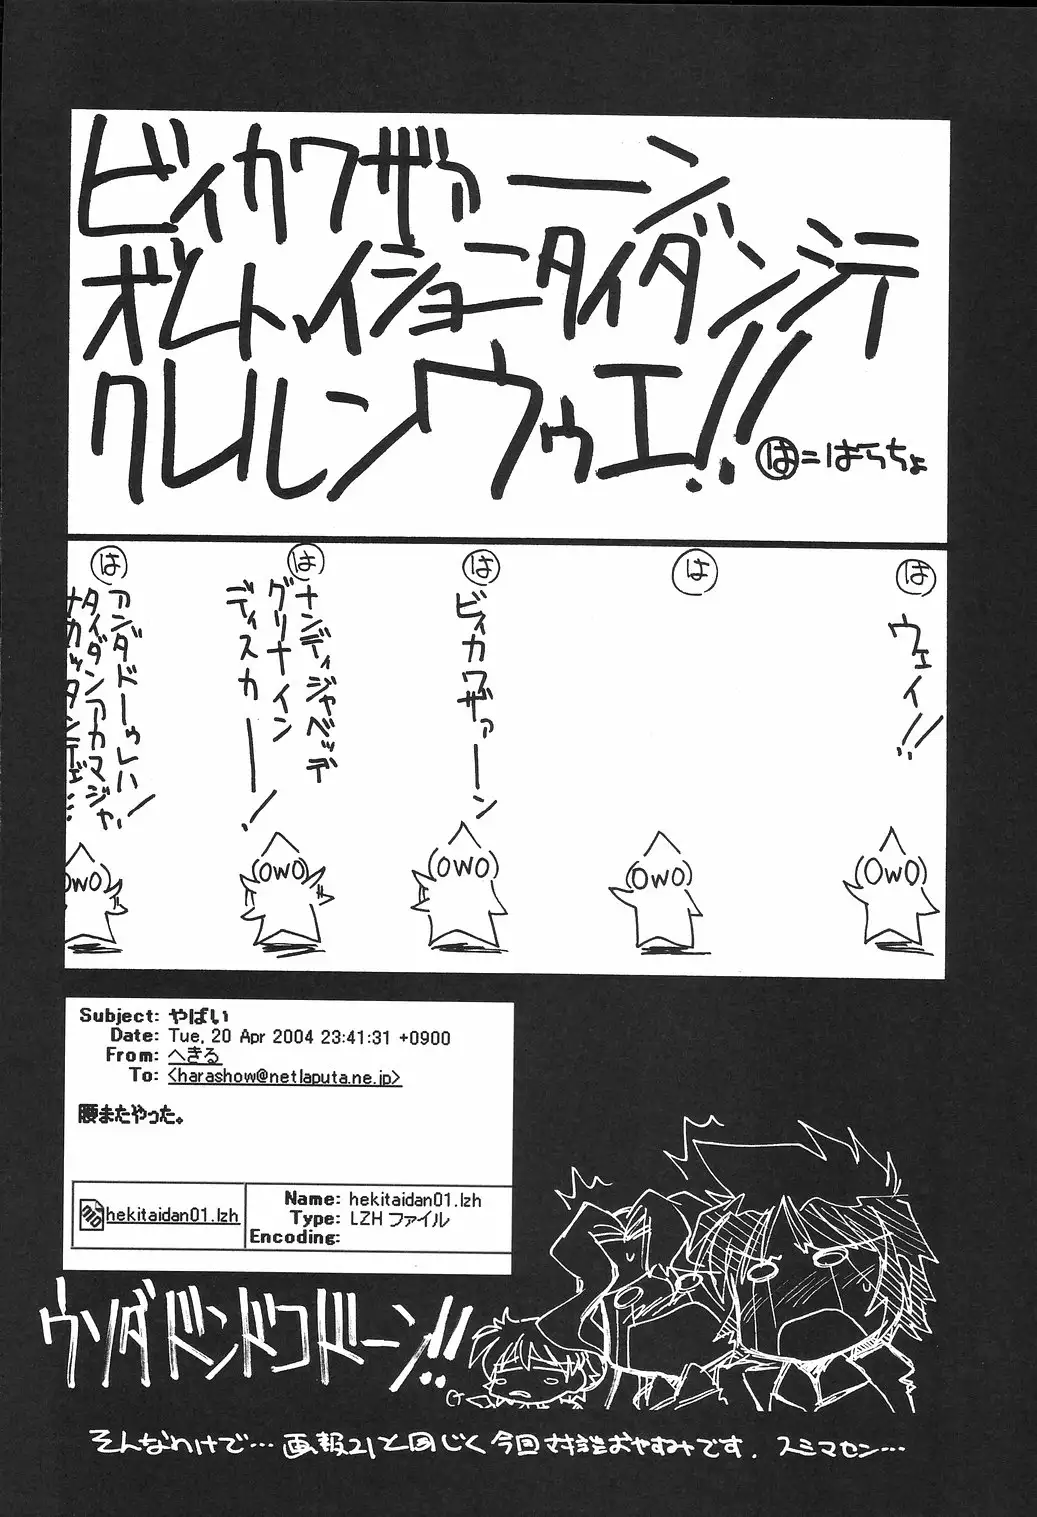 ビィカワザァーン
オレトイショニタイダンシテ
クレルンウゥエ!!
は=はらちょ
は
ウェイ!!
は
は
ビィカワザァーン
は
ナンディジャベッデ
グリナイン
ディスカー!
は
アンダドーゥレハ!
タイダンアカマジャ!
ナカッタンディェ:
Subject: やばい
Date: Tue, 20 Apr 2004 23:41:31 +0900
From: へきる
To: <harashow@netlaputa.ne.jp>
腰またやった。
hekitaidan01.lzh
Name: hekitaidan01.lzh
Type: LZH ファイル
Encoding:
ウソダドンドコドーン!!
そんなわけで…画報21と同じく今回対談おやすみです. スミマセン…